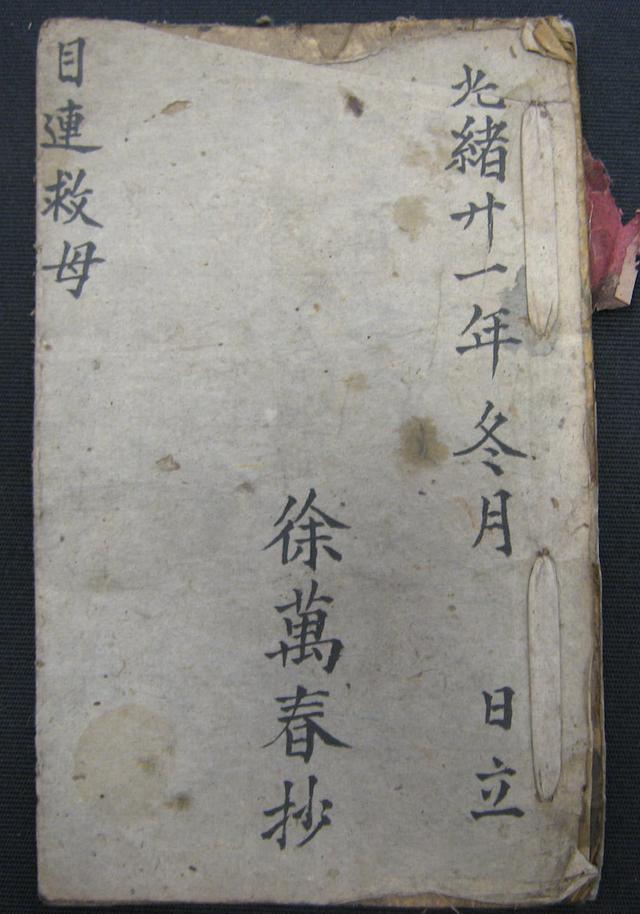 光緒廿一年冬月 日立
徐萬春抄
目連救母